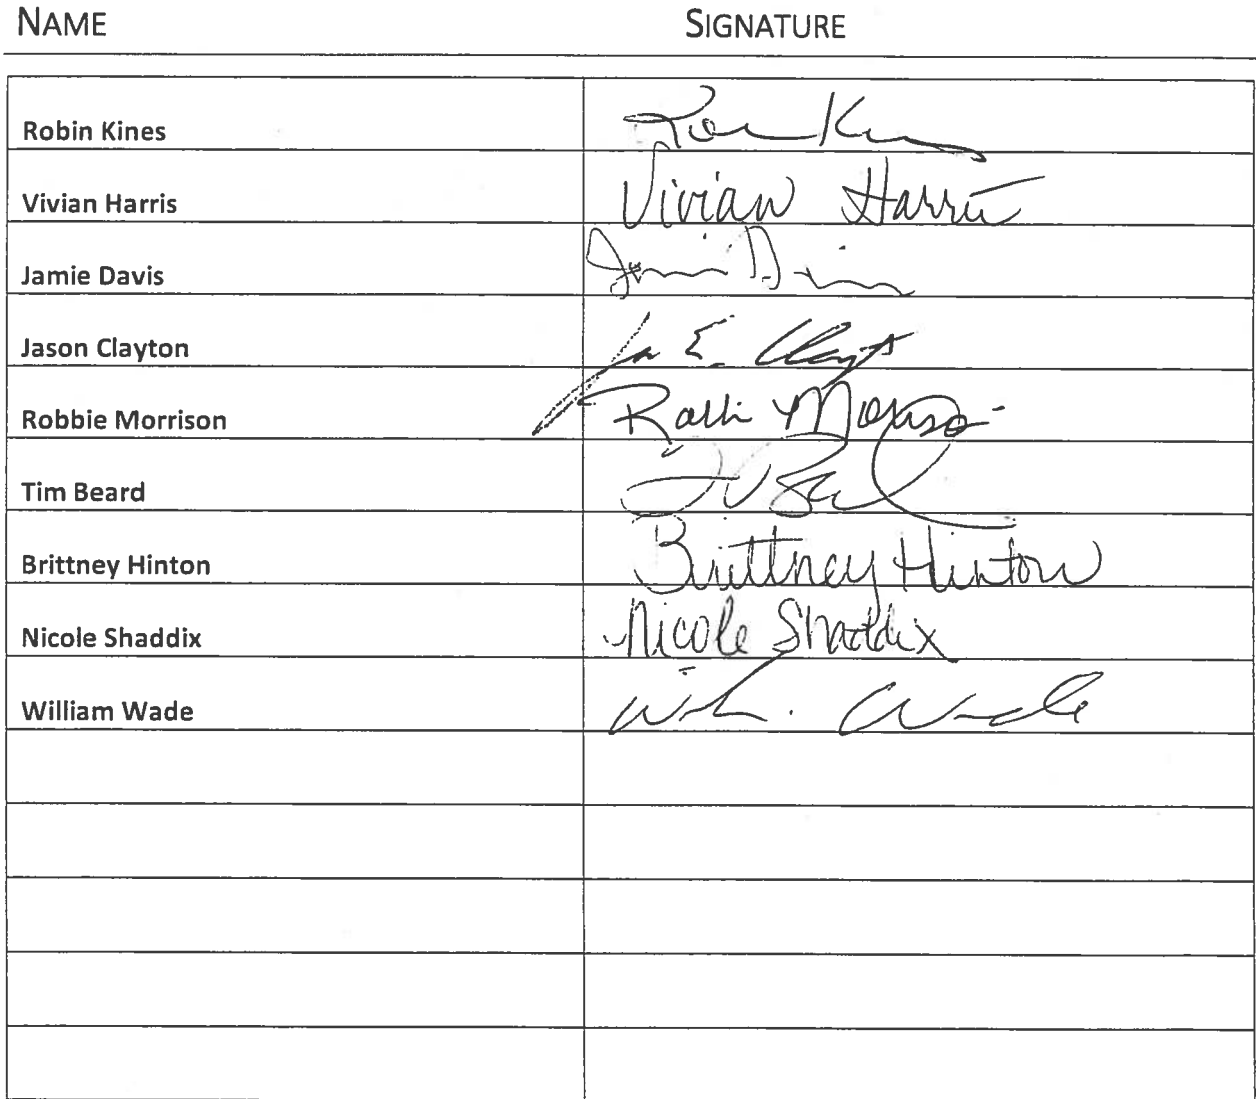 NAME SIGNATURE
Robin Kines
Vivian Harris Vivian Harris
Jamie Davis
Jason Clayton E. Clayt
Robbie Morrison
Tim Beard
Brittney Hinton Brittney Hinton
Nicole Shaddix Nicole Shaddix
William Wade Wade